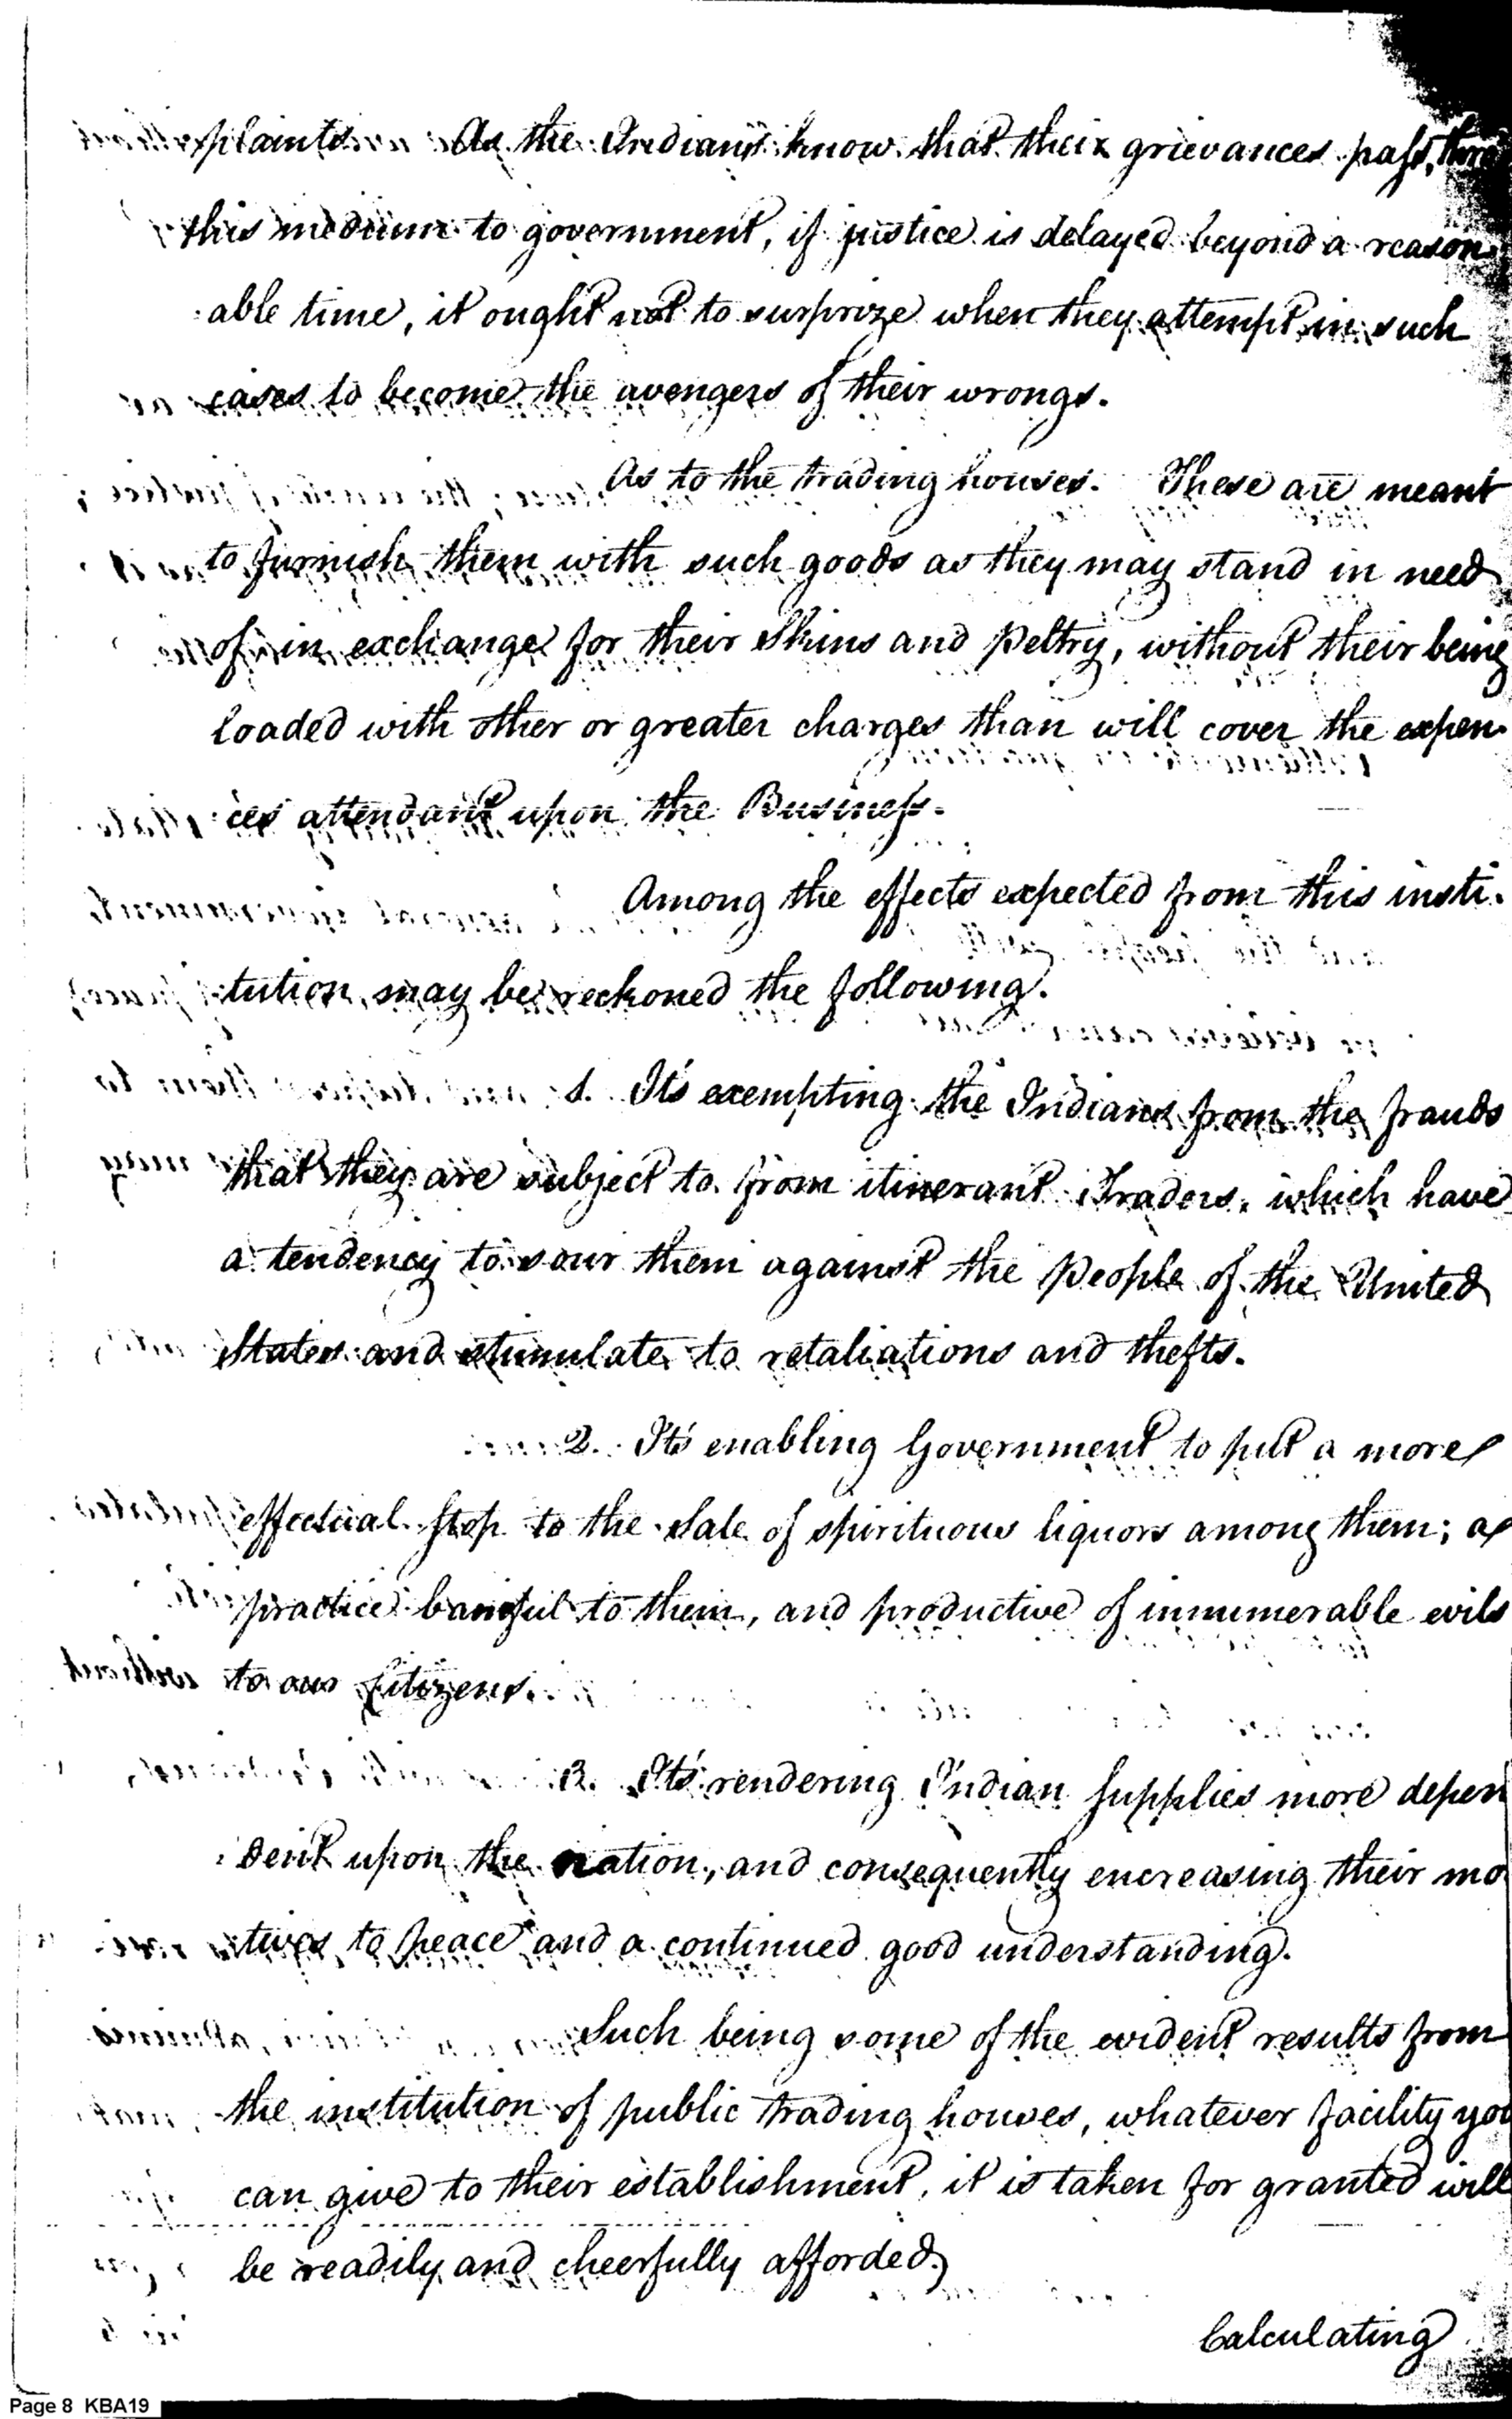 plaints. As the Indians know that their grievances pass, thro
this medium to government, if justice is delayed beyond a reason
able time, it ought not to surprize when they attempt in such
cases to become the avengers of their wrongs.
As to the trading houses. These are meant
to furnish them with such goods as they may stand in need
of in exchange for their Skins and Peltry, without their being
loaded with other or greater charges than will cover the expen-
ces attendant upon the Business.
Among the effects expected from this insti-
tution may be reckoned the following.
1. It's exempting the Indians from the frauds
that they are subject to from itinerant Traders, which have
a tendency to sour them against the People of the United
States and stimulate to retaliations and thefts.
2. It's enabling Government to put a more
effectual stop to the Sale of spirituous liquors among them; a
practice baneful to them, and productive of innumerable evils
to our Citizens.
3. It's rendering Indian Supplies more depen
dent upon the nation, and consequently encreasing their mo
tives to peace and a continued good understanding.
Such being some of the evident results from
the institution of public trading houses, whatever facility you
can give to their establishment, it is taken for granted will
be readily and cheerfully afforded.
Calculating
Page 8 KBA19